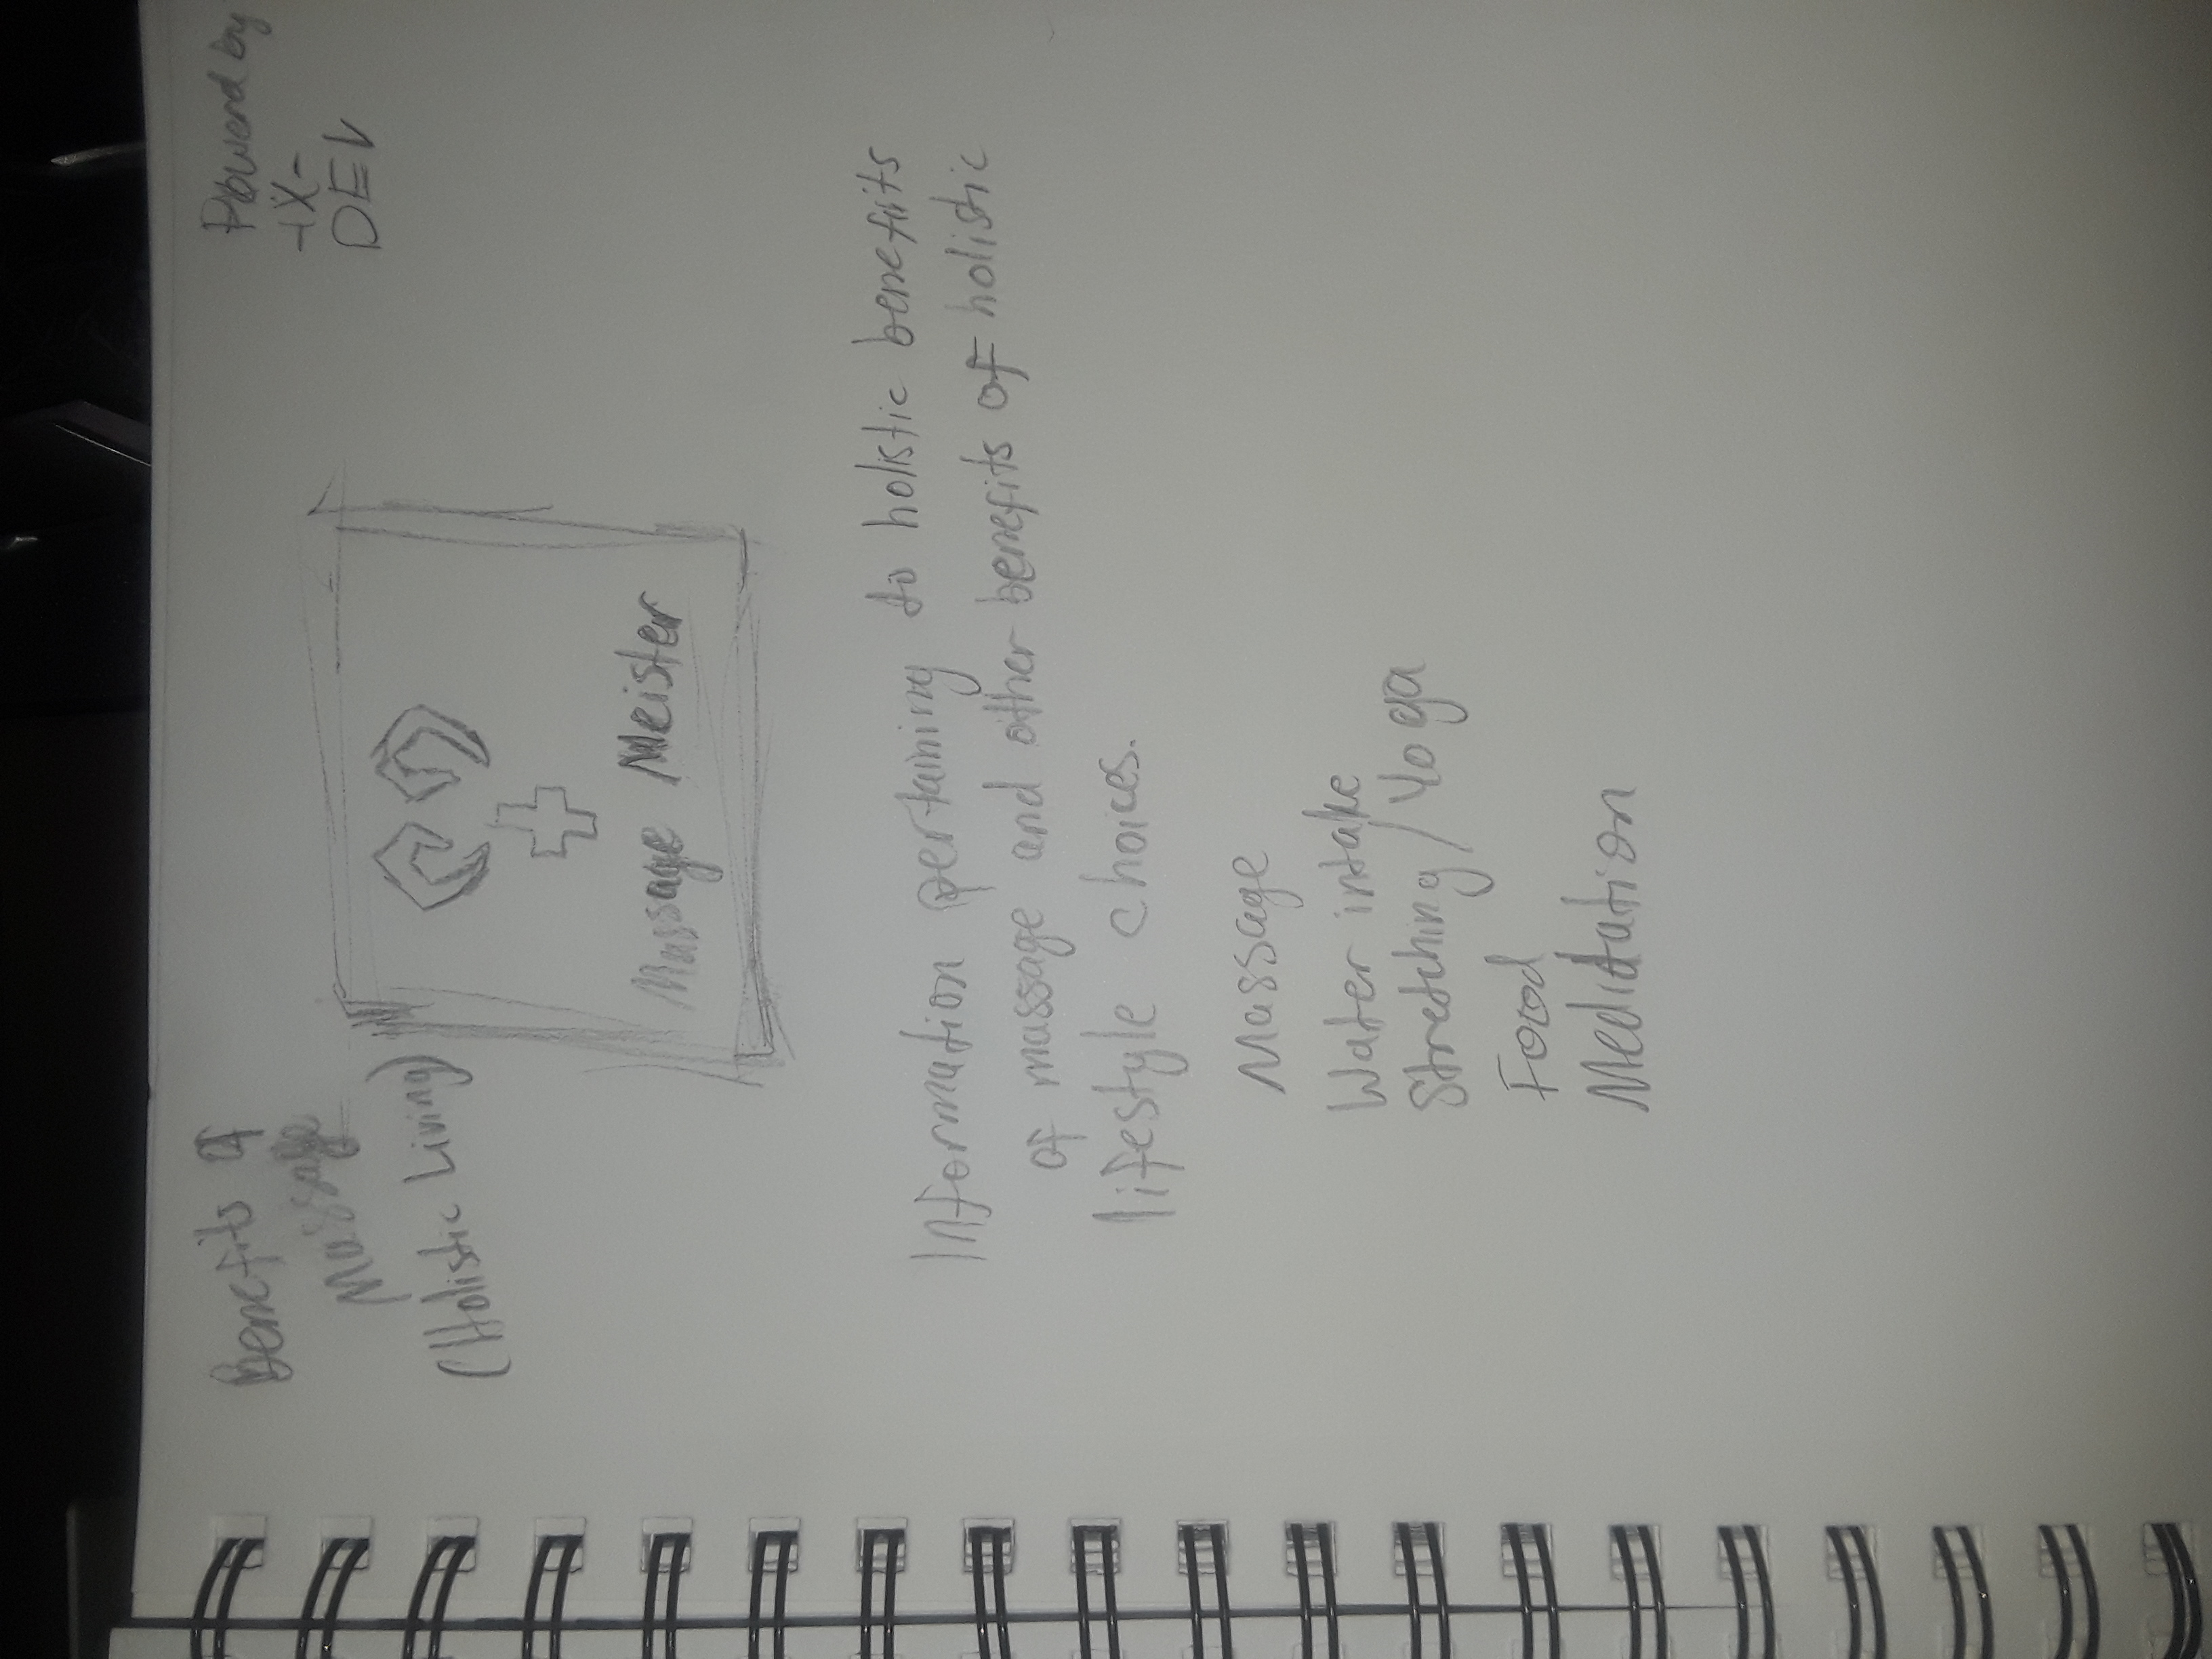 Benefits of
Massage
(Holistic Living)
Powered by
-IX-
DEV
Massage Meister
Information pertaining to holistic benefits
of massage and other benefits of holistic
lifestyle choices.
Massage
Water intake
Stretching/Yoga
Food
Meditation